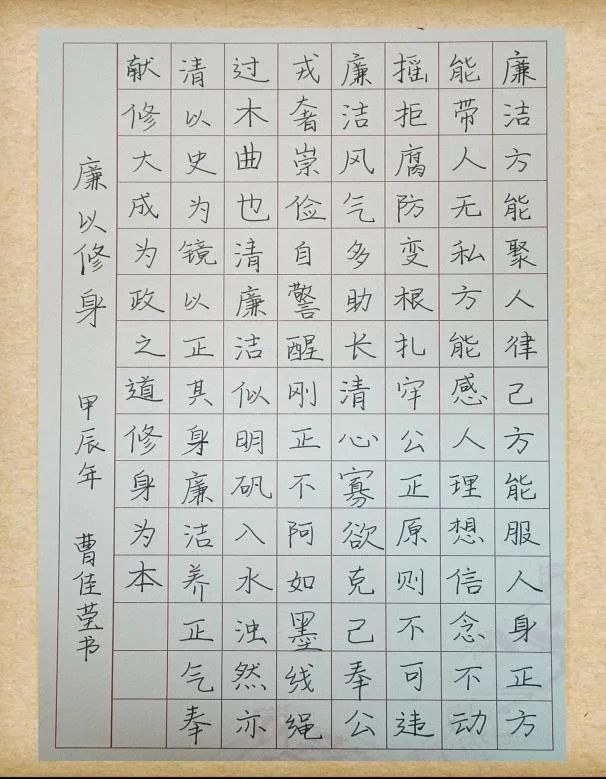 廉洁方能聚人律己方能服人身正方
能带人无私方能感人理想信念不动
摇拒腐防变根扎牢公正原则不可违
廉洁风气多助长清心寡欲克己奉公
戎奢崇俭自警醒刚正不阿如墨线绳
过木曲也清廉洁似明矾入水浊然亦
清以史为镜以正其身廉洁养正气奉
献修大成为政之道修身为本
廉以修身 甲辰年 曹佳莹书